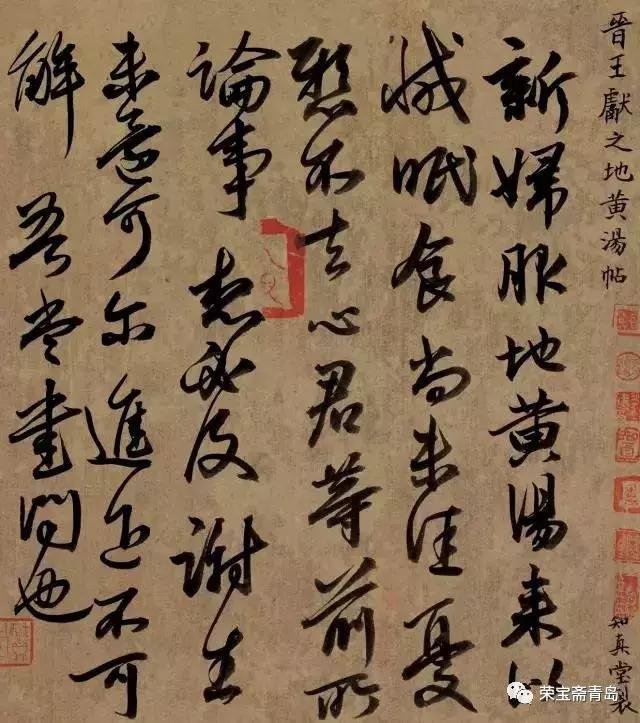 晉王獻之地黄湯帖
知真堂製
新婦服地黄湯来似
減眠食尚未佳憂
懸不去心君等前所
論事 想必及謝生
未還可尔進退不可
解 吾當書問也
荣宝斋青岛